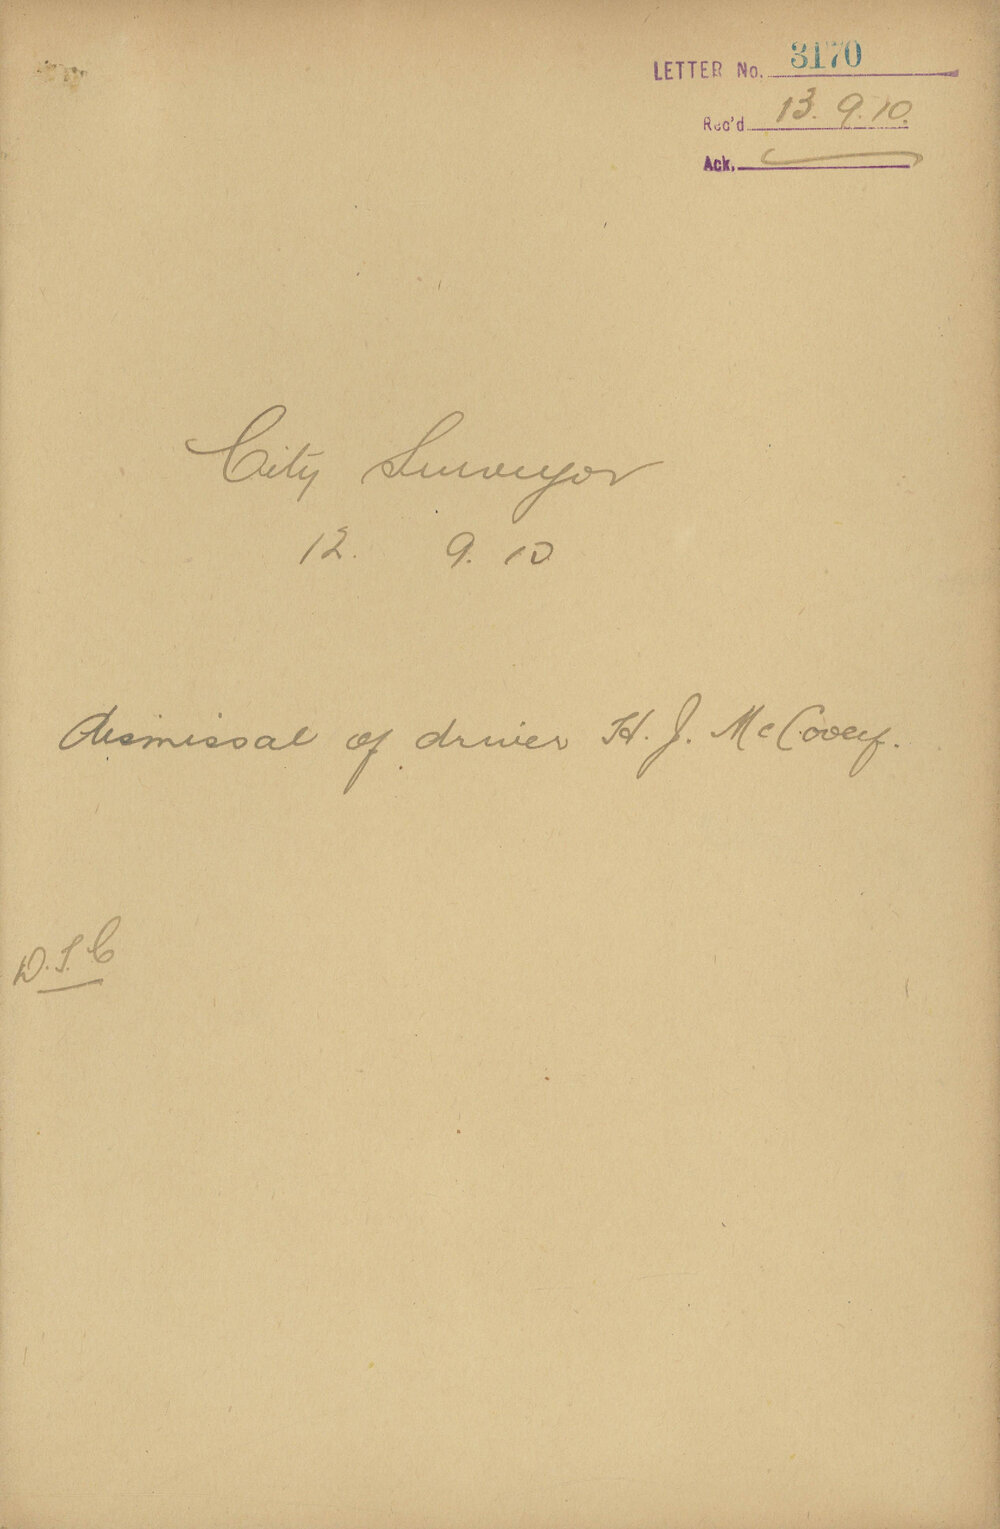 LETTER No. 3170
Rec'd 13. 9. 10.
Ack.
City Surveyor
12. 9. 10
Dismissal of driver H. J. McCovey.
D.S.C